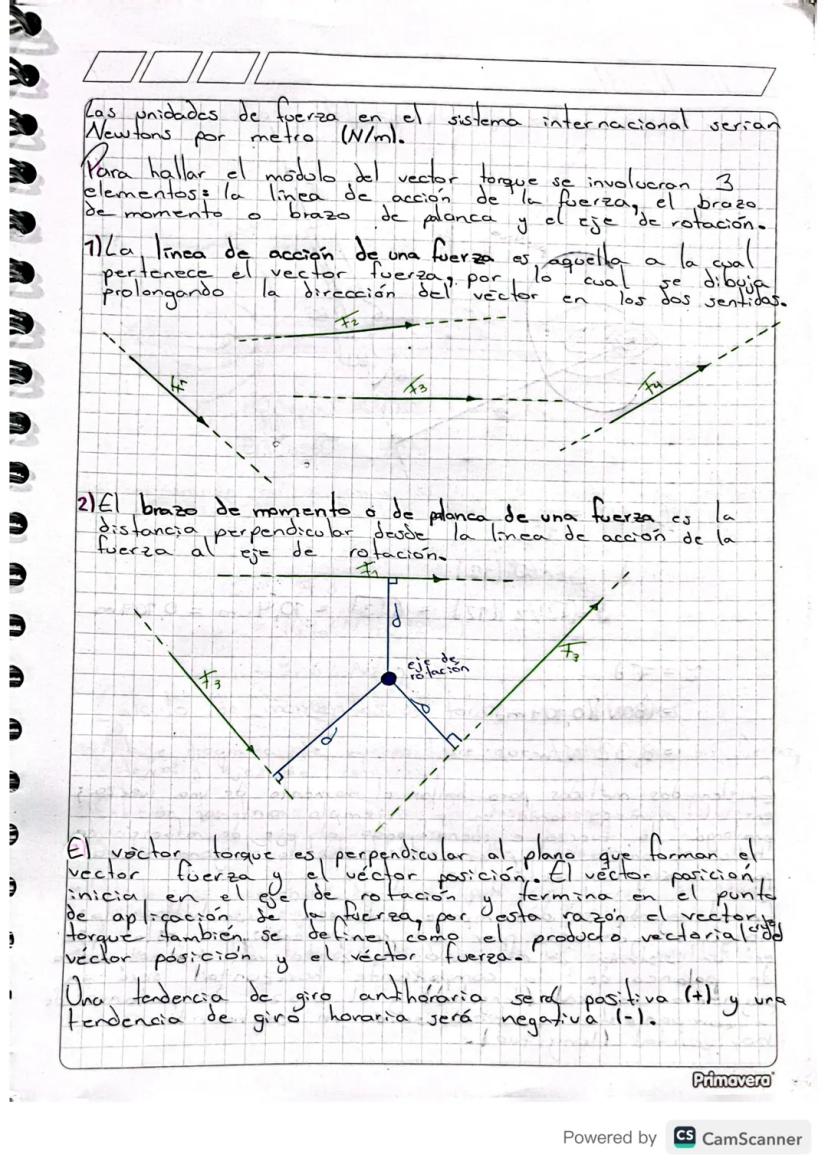 Las unidades de fuerza en el sistema internacional serian
Newtons por metro (N/m).
Para hallar el módulo del vector torque se involucran 3
elementos: la línea de acción de la fuerza, el brazo
de momento o brazo de palanca y el eje de rotación.
1) La línea de acción de una fuerza es aquella a la cual
pertenece el vector fuerza, por lo cual se dibuja
prolongando la dirección del vector en los dos sentidos.
F2
F1
F3
F4
2) El brazo de momento o de palanca de una fuerza es la
distancia perpendicular desde la línea de acción de la
fuerza al eje de rotación.
F1
d
eje de
rotación
F3
F3
d
d
El véctor torque es perpendicular al plano que forman el
vector fuerza y el véctor posición. El véctor posición
inicia en el eje de rotación y termina en el punto
de aplicación de la fuerza, por esta razón el vector
torque también se define como el producto vectorial del
véctor posición y el véctor fuerza.
Una tendencia de giro antihoraria será positiva (+) y una
tendencia de giro horaria será negativa (-).
Primavera
Powered by CS CamScanner